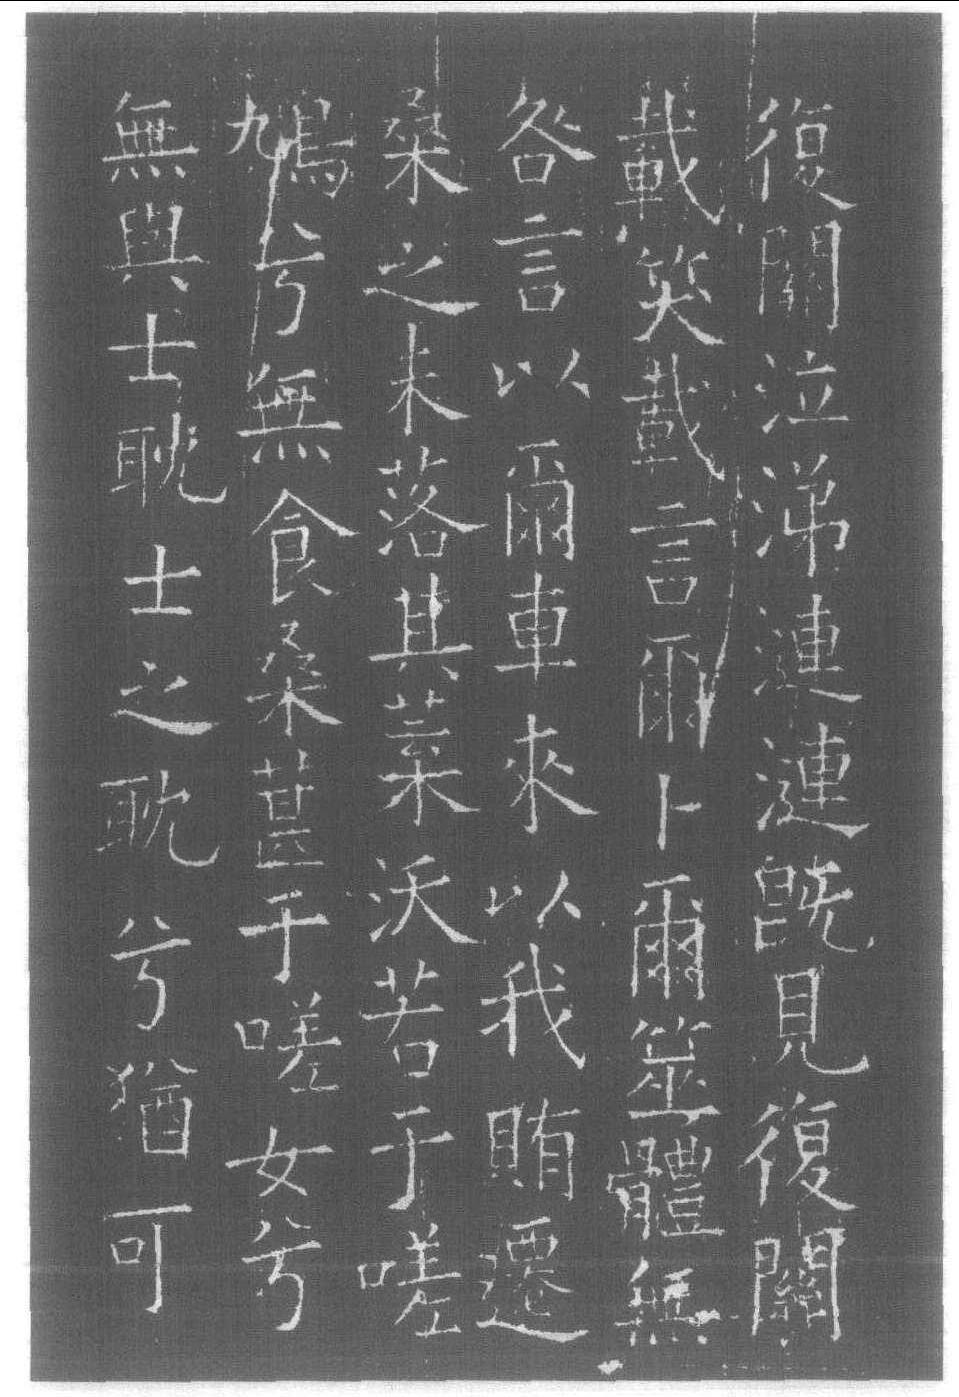 復關泣涕漣漣既見復關
載笑載言爾卜爾筮體無
咎言以爾車來以我賄遷
桑之未落其葉沃若于嗟
鳩兮無食桑葚于嗟女兮
無與士耽士之耽兮猶可